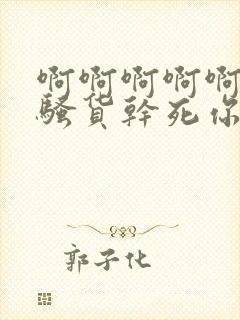 啊啊啊啊啊
骚货幹死你
郭子化